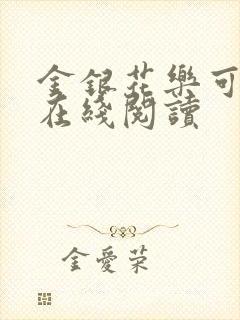 金銀花樂可
在綫閱讀
金愛荣